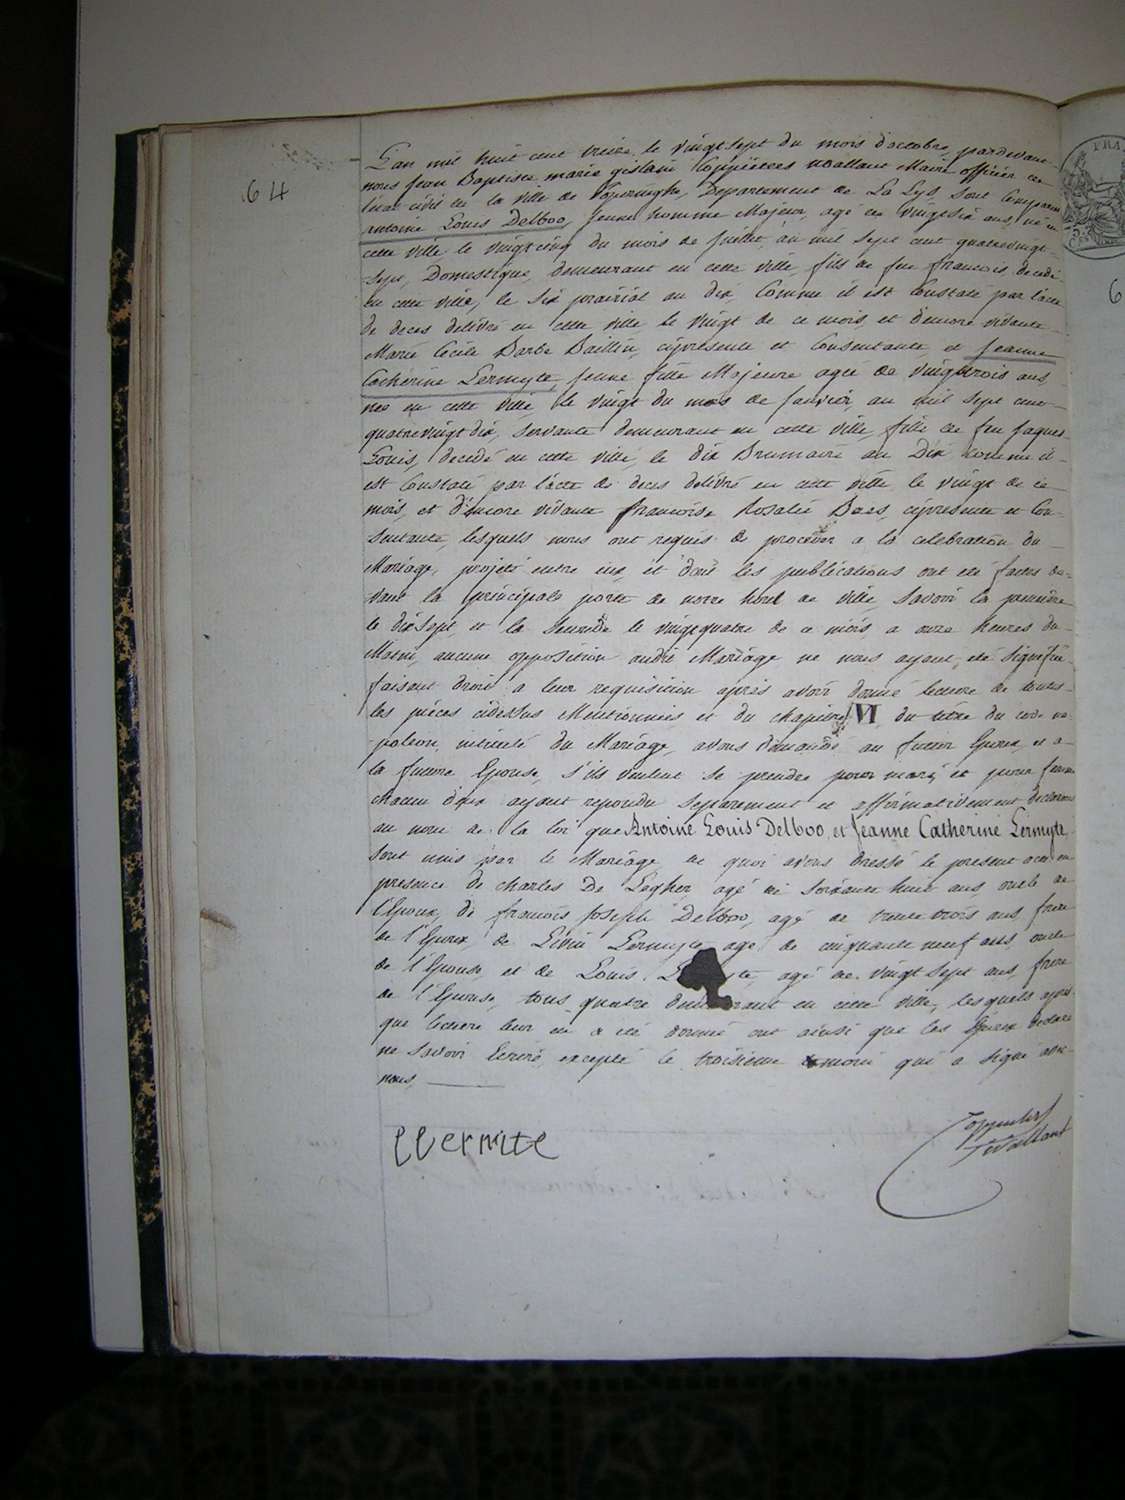 64
L'an mil huit cent treize, le vingt sept du mois d'octobre, pardevant
nous Jean Baptiste marie gislain Coppieters wallant Maire officier de
l'etat civil de la ville de Poperinghe, Departement de La Lys, sont Comparus
Antoine Louis Delboo, Jeune homme Majeur, agé de vingt six ans, né en
cette ville le vingt cinq du mois de Juillet, an mil sept cent quatrevingt
sept, Domestique, demeurant en cette ville, fils de feu francois, decedé
en cette ville, le six prairial an dix, Comme il est Constaté par l'acte
de deces delivré en cette ville le vingt de ce mois, et d'encore vivante
Marie Cecile Barbe Baillin, cipresente et Consentante, et Jeanne
Catherine Lermyte, Jeune fille Majeure agée de vingt trois ans,
née en cette ville, le vingt du mois de Janvier, an mil sept cent
quatrevingt dix, servante demeurant en cette ville, fille de feu Jaques
Louis, decedé en cette ville, le dix Brumaire an Dix comme il
est Constaté par l'acte de deces delivré en cette ville le vingt de ce
mois, et d'encore vivante francoise Rosalie Baes, cipresente et Con-
sentante, lesquels nous ont requis de proceder a la celebration du
Mariage, projeté entre eux, et dont les publications ont été faites de-
vant la principale porte de notre hotel de ville, Savoir la premiere
le dix sept, et la seconde le vingt quatre de ce mois a onze heures du
Matin, aucune opposition audit Mariage ne nous ayant été signifiée
faisant droit a leur requisition après avoir donné lecture de toutes
les pièces cidessus Mentionnées et du chapitre VI du titre du code na-
poleon, intitulé du Mariage, avons demandé au futur Epoux, et a
la future Epouse, s'ils veulent se prendre pour mari et pour femme
chacun d'eux ayant repondu separement et affirmativement declarons
au nom de la loi que Antoine Louis Delboo, et Jeanne Catherine Lermyte,
sont unis par le Mariage, de quoi avons dressé le present acte en
presence de charles De Legher agé de soixante huit ans oncle de
l'Epoux, de francois Joseph Delboo, agé de trente trois ans, frere
de l'Epoux, de Livin Lermyte agé de cinquante neuf ans, oncle
de l'Epouse et de Louis agé de vingt sept ans, frere
de l'Epouse, tous quatre demeurant en cette ville, lesquels après
que lecture leur en a été donné ont ainsi que les Epoux declaré
ne savoir Ecrire, excepté le troisieme temoin qui a signé avec
nous,
Coppieters
Wallant